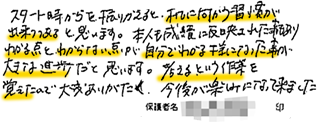 スタート時からを振りかえると、それに何か習慣が
出来てきると思います。本人も成績に反映された結果
わかる点とわからない点が自分でわかる様になった事が
大きな進歩だと思います。考えるという作業を
覚えたので大変ありがたく、今後が楽しみになって来ました
保護者名 印